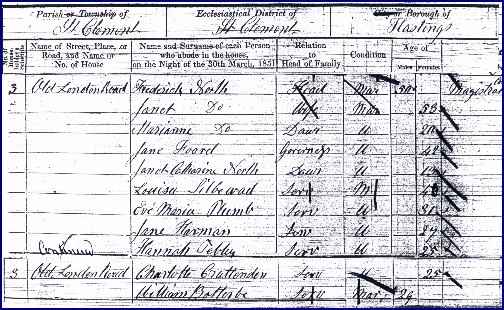 Parish or Township of Ecclesiastical District of City or Borough of
St Clement St Clement Hastings
Name of Street, Place, or Road, and Name or No. of House
Name and Surname of each Person who abode in the house, on the Night of the 30th March, 1851
Relation to Head of Family
Condition
Age of
Males Females
3 Old London Road Frederick North Head Mar 50 Magistrate
Janet Do Wife Mar
Marianne Do Daur U 20
Jane Foard Governess U 42
Janet Catharine North Daur U
Louisa Serv M
Eve Maria Plumb Serv U
Jane Harman Serv U
Continued Hannah Serv U 25
3 Old London Road Charlotte Crattenden Serv U 25
William Serv Mar 29